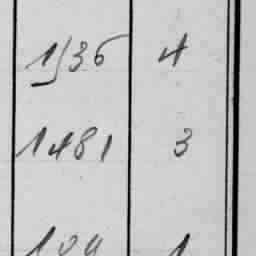 1536 4
1481 3